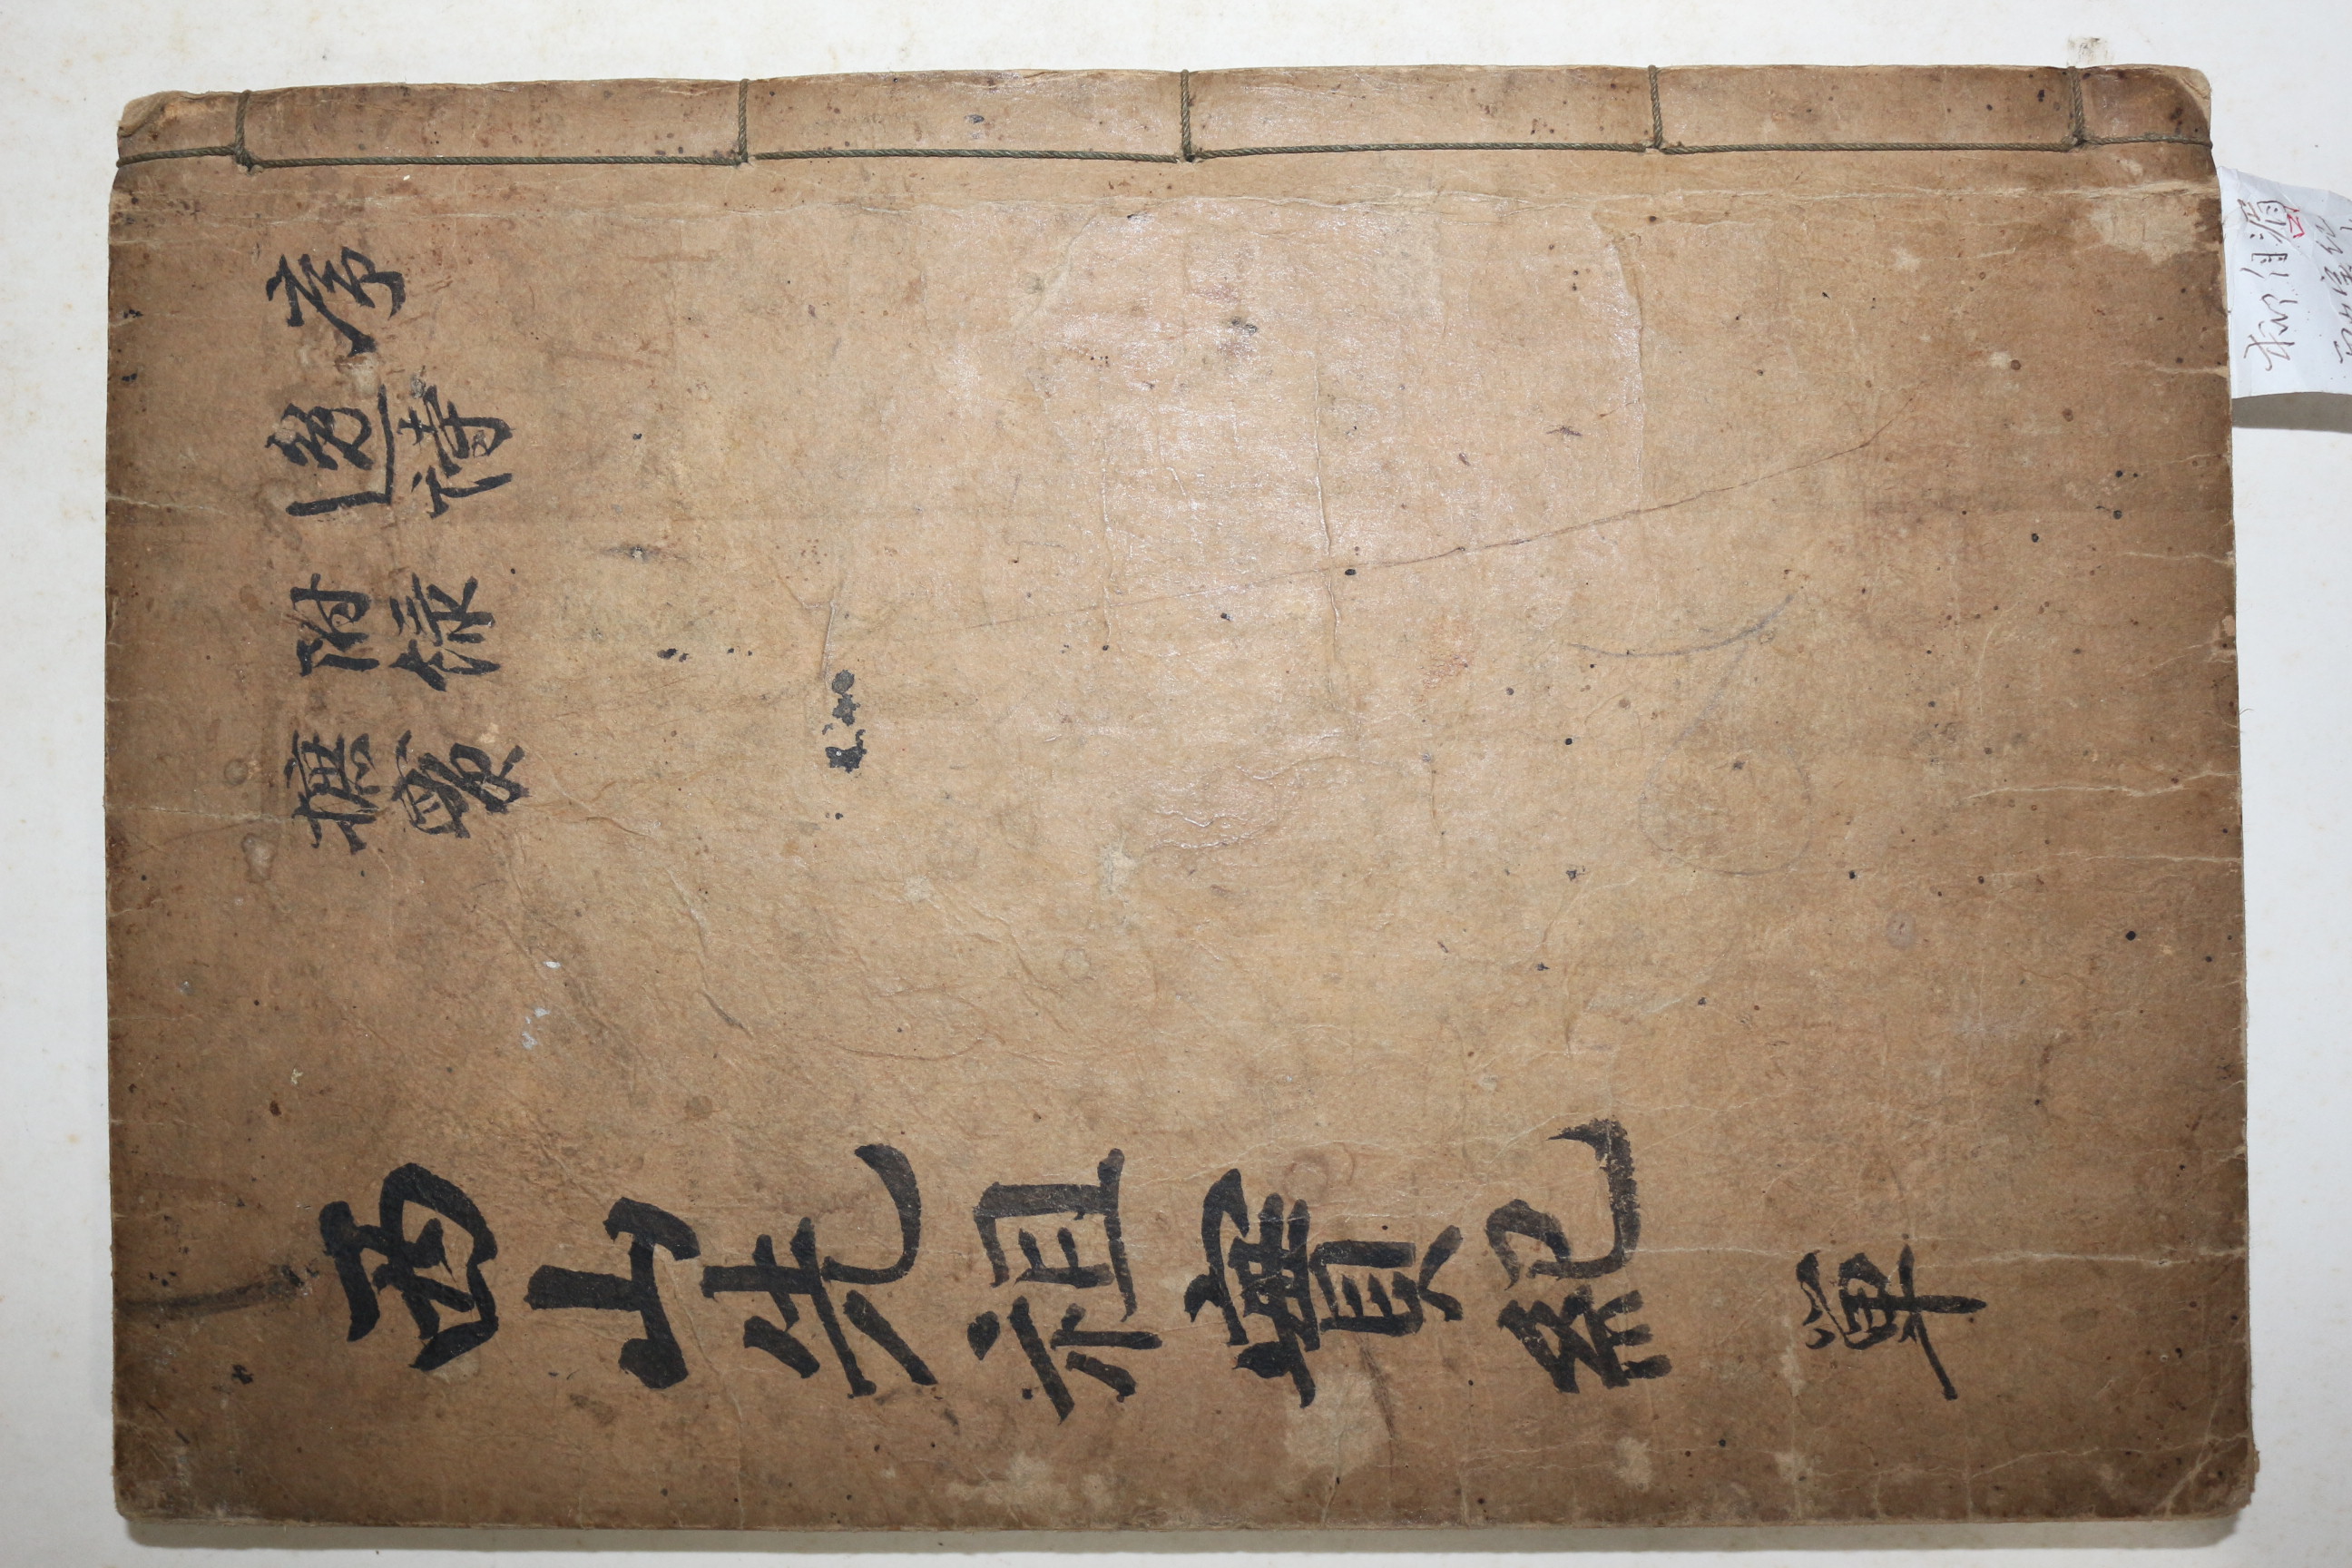 序
逸詩
附錄
摭實
西山先祖實紀 單
柳自湄